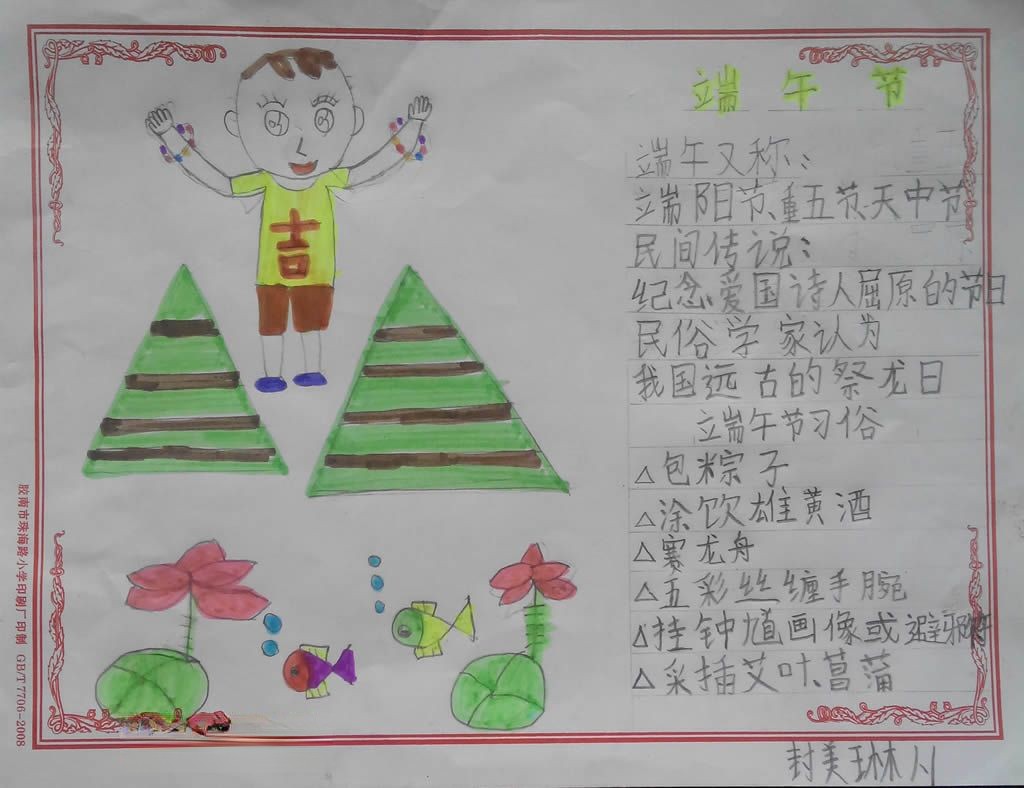 端午节
端午又称：
端阳节、重五节、天中节
民间传说：
纪念爱国诗人屈原的节日
民俗学家认为
我国远古的祭龙日
端午节习俗
△包粽子
△涂饮雄黄酒
△赛龙舟
△五彩丝缠手腕
△挂钟馗画像或避邪符
△采插艾叶、菖蒲
吉
胶南市珠海路小学印刷厂印制 GB/T7706-2008
封美琳